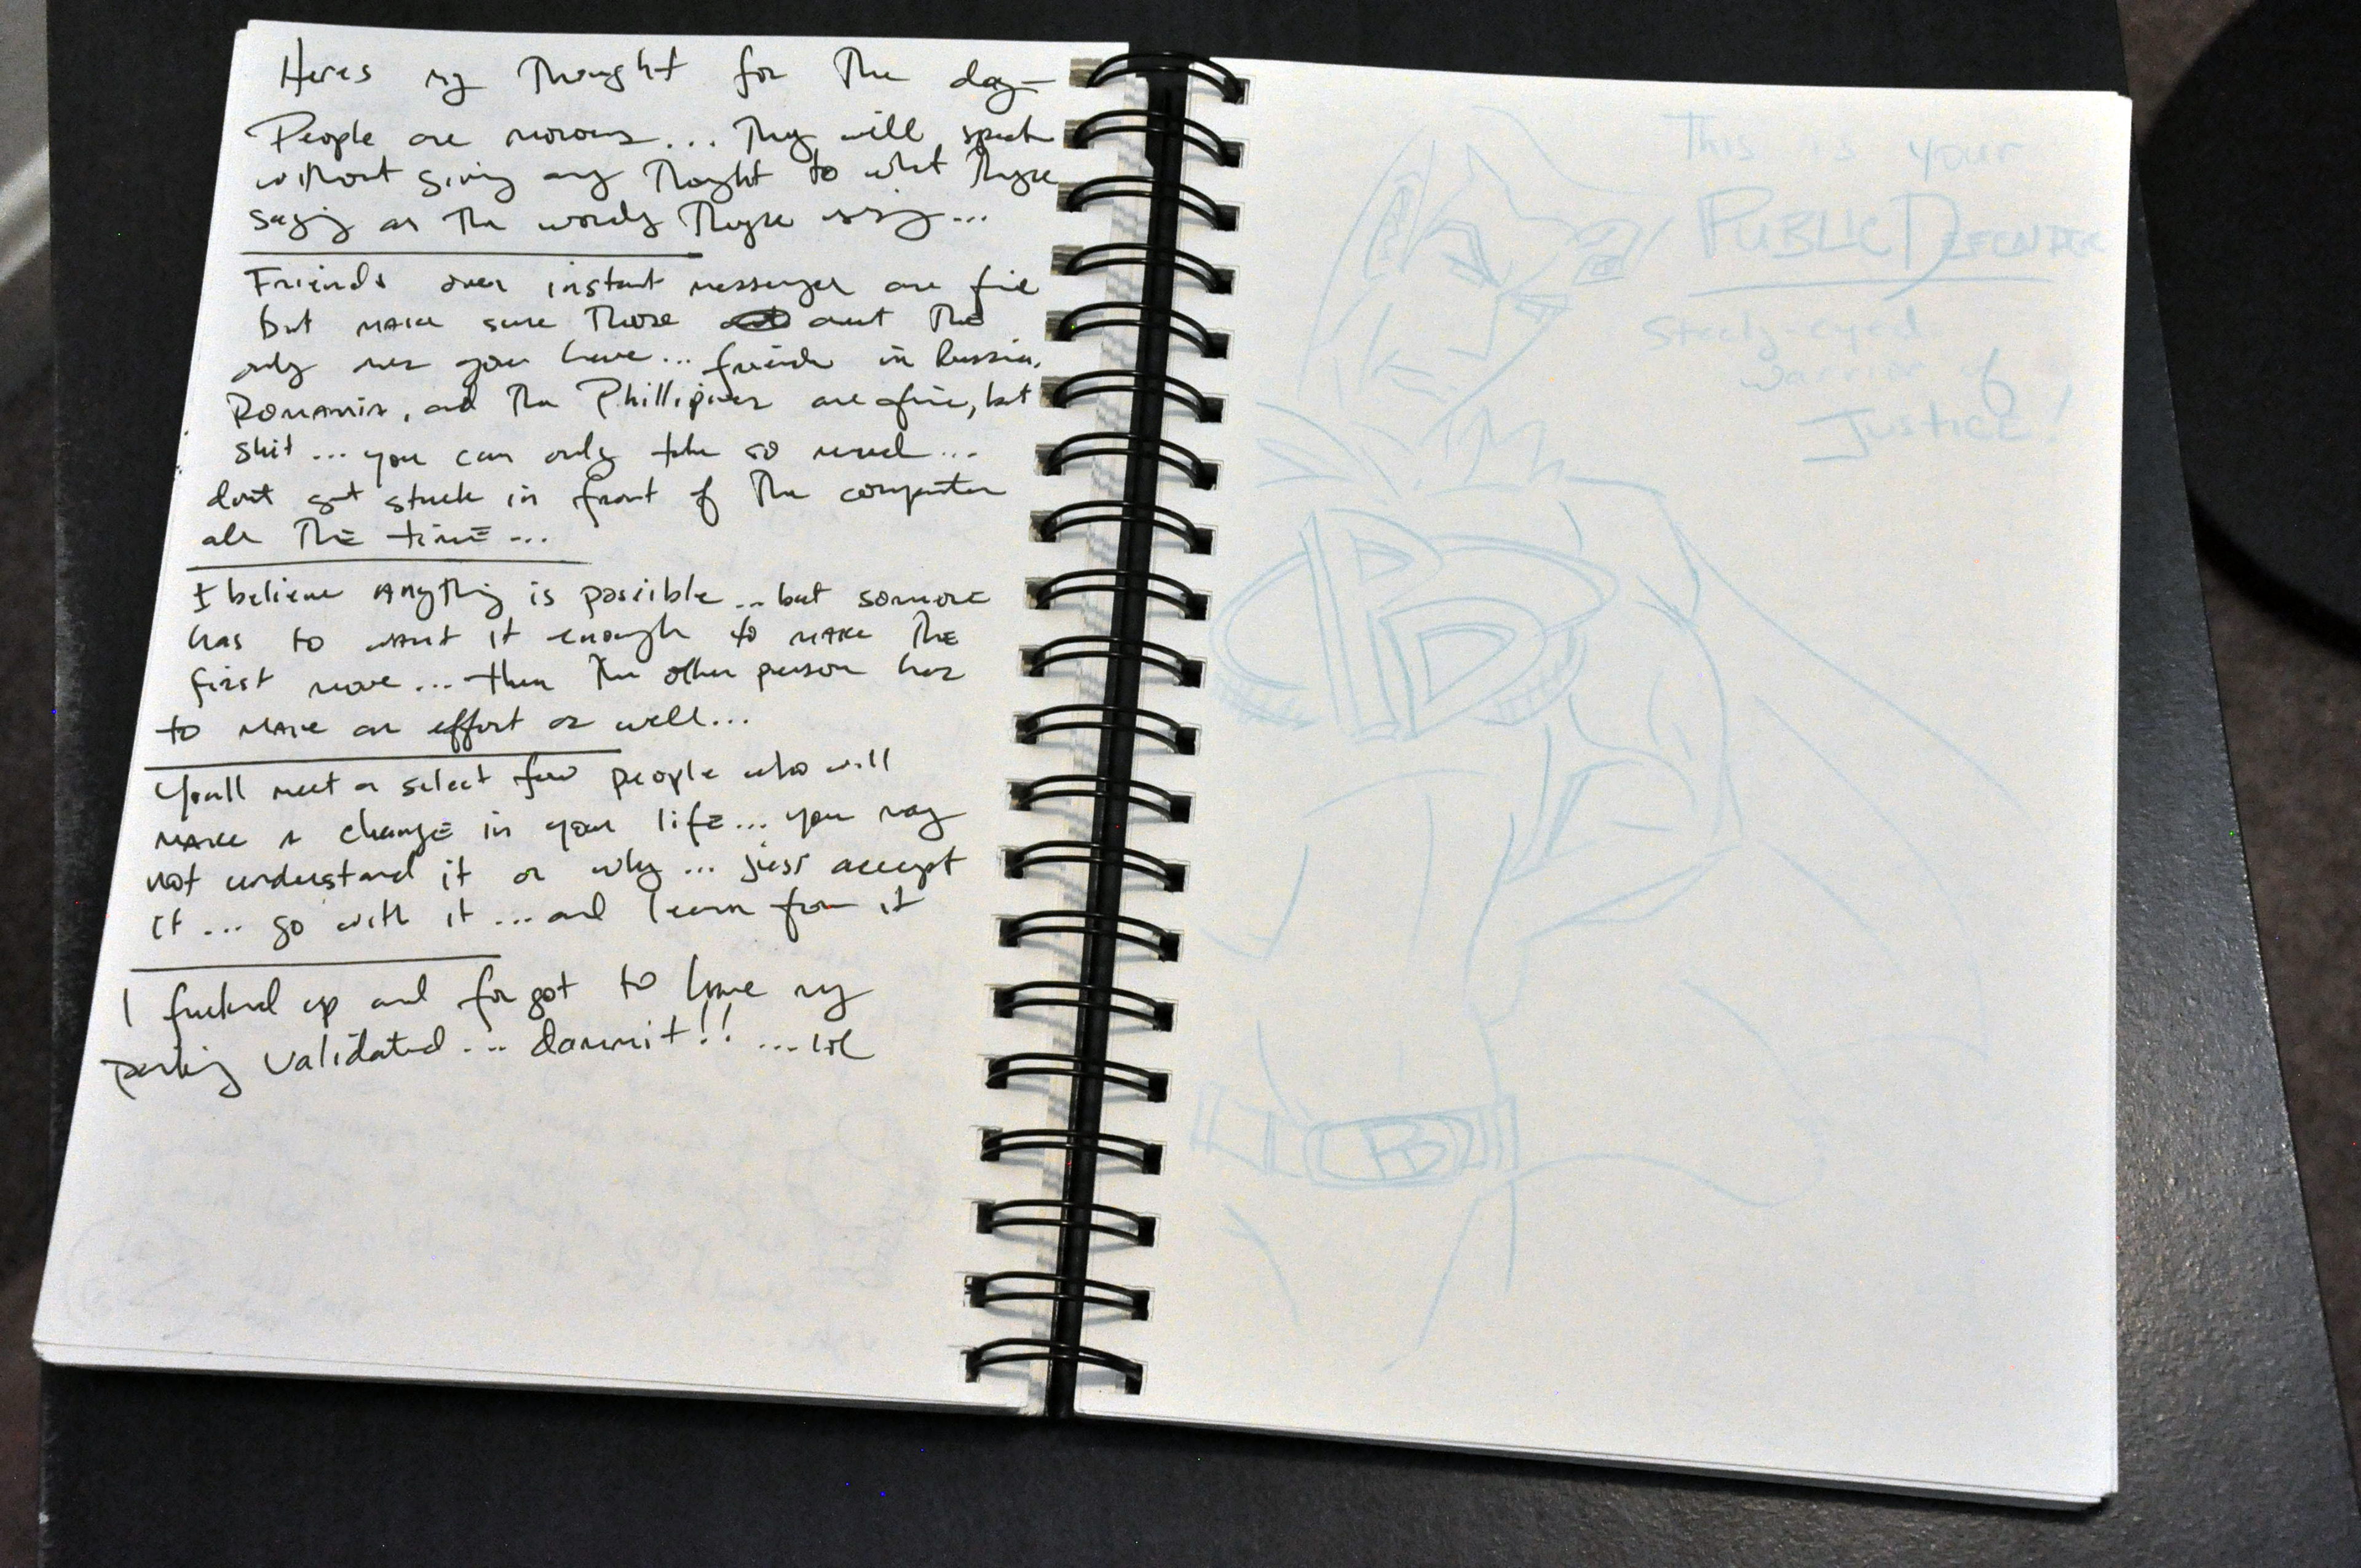 Heres my thought for the day–
People are morons... They will speak
without giving any thought to what theyre
saying or the words theyre using...
Friends over instant messenger are fine
but make sure those arent the
only ones you have... friends in Russia,
Romania, and the Phillipines are fine, but
shit... you can only take so much...
dont get stuck in front of the computer
all the time...
I believe anything is possible... but someone
has to want it enough to make the
first move... then the other person has
to make an effort as well...
Youll meet a select few people who will
make a change in your life... you may
not understand it or why... just accept
it... go with it... and learn from it
I fucked up and forgot to have my
parking validated... dammit!! ...lol
This is your
PUBLIC DEFENDER
Steely-eyed
warrior of
Justice!
PD
PD